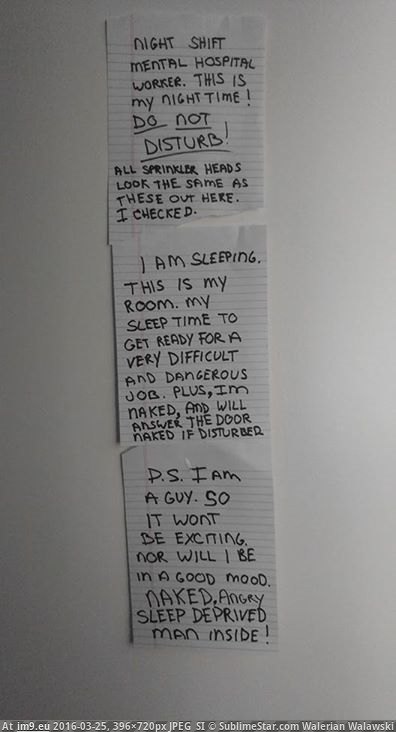 NIGHT SHIFT
MENTAL HOSPITAL
WORKER. THIS IS
MY NIGHT TIME!
DO NOT
DISTURB!
ALL SPRINKLER HEADS
LOOK THE SAME AS
THESE OUT HERE.
I CHECKED.
I AM SLEEPING.
THIS IS MY
ROOM. MY
SLEEP TIME TO
GET READY FOR A
VERY DIFFICULT
AND DANGEROUS
JOB. PLUS, IM
NAKED, AND WILL
ANSWER THE DOOR
NAKED IF DISTURBED
P.S. I AM
A GUY. SO
IT WONT
BE EXCITING.
NOR WILL I BE
IN A GOOD MOOD.
NAKED, ANGRY
SLEEP DEPRIVED
MAN INSIDE!
At im9.eu 2016-03-25, 396×720px JPEG SI © SublimeStar.com Walerian Walawski